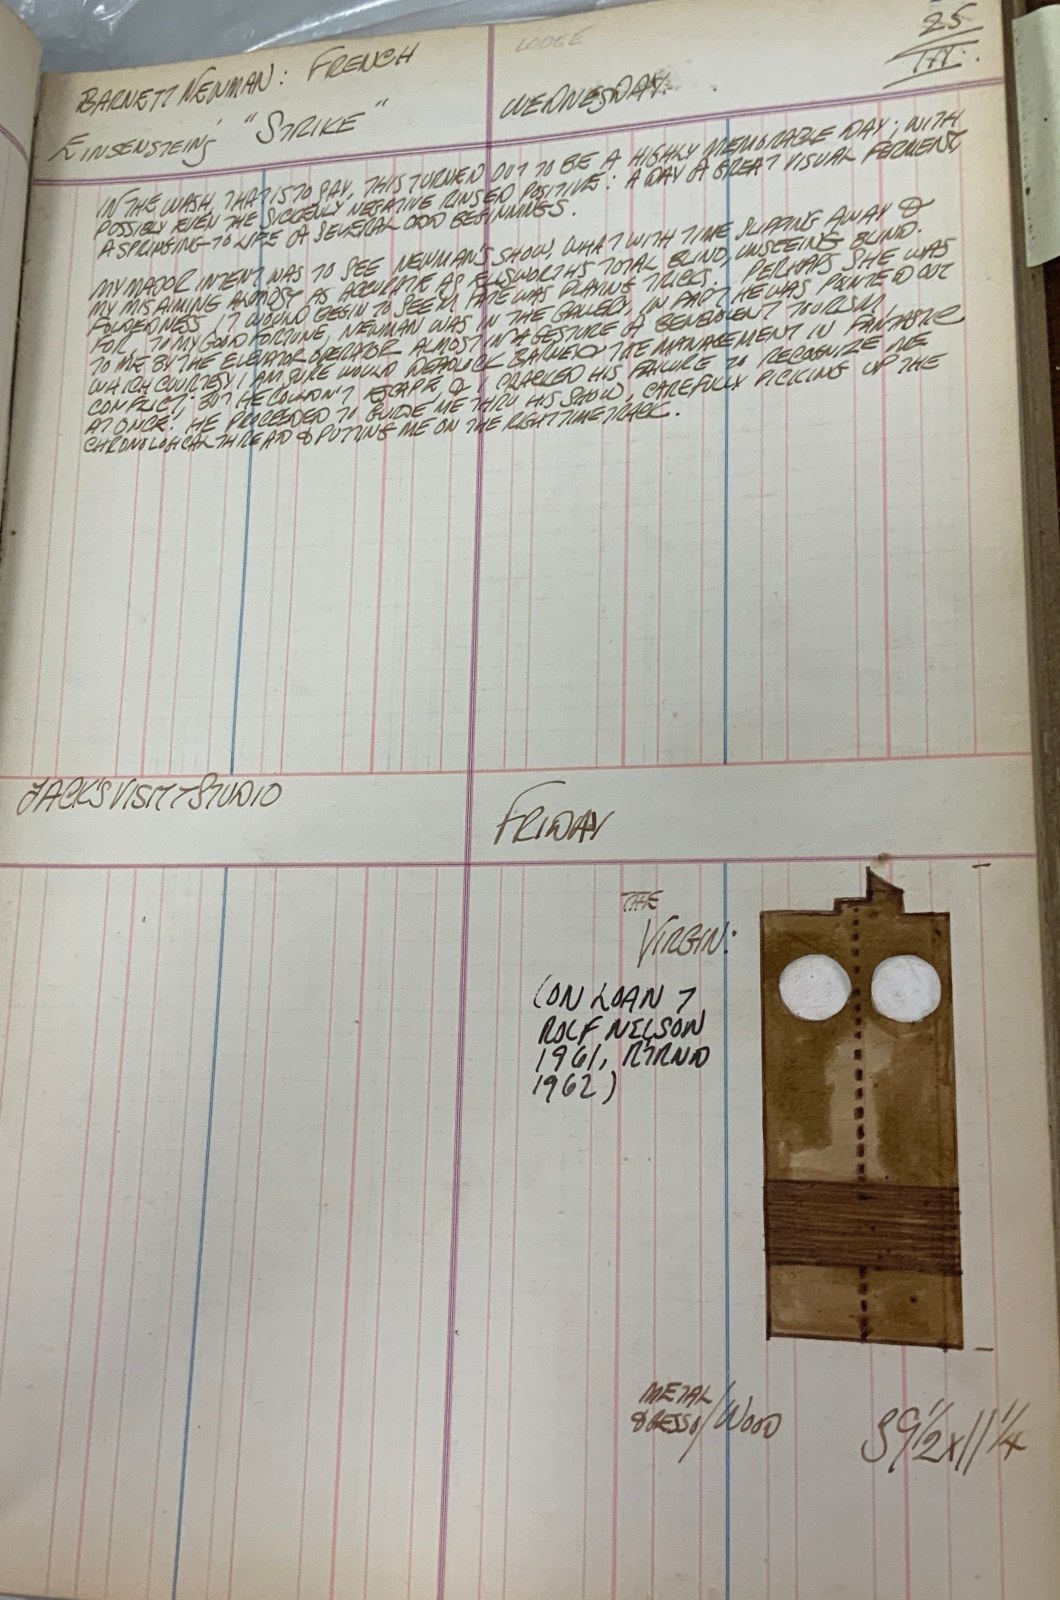 BARNETT NEWMAN: FRENCH
EINSENSTEIN'S "STRIKE"
LODGE
WEDNESDAY.
25
IN THE WASH, THAT IS TO SAY, THIS TURNED OUT TO BE A HIGHLY MEMORABLE DAY; WITH
POSSIBLY EVEN THE SUDDENLY NEGATIVE RINSED POSITIVE: A DAY OF GREAT VISUAL FERMENT,
A SPRINGING-TO LIFE OF SEVERAL ODD BEGINNINGS.
MY MAJOR INTENT WAS TO SEE NEWMAN'S SHOW, WHAT WITH TIME SLIPPING AWAY &
MY MISAIMING ALMOST AS ACCURATE AS ELLSWORTH'S TOTAL BLIND, UNSEEING BLIND.
FOLDEDNESS, IT WOULD BEGIN TO SEEM FATE WAS PLAYING TRICKS. PERHAPS SHE WAS
FOR TO MY GOOD FORTUNE, NEWMAN WAS IN THE GALLERY, IN FACT HE WAS POINTED OUT
TO ME BY THE ELEVATOR OPERATOR ALMOST IN A GESTURE OF BENEVOLENT TOURISM,
WHICH COURTESY I AM SURE WOULD DEADLOCK BARNEY & THE MANAGEMENT IN FANTASTIC
CONFLICT; BUT HE COULDN'T ESCAPE, & I CRACKED HIS FAILURE TO RECOGNIZE ME
AT ONCE. HE PROCEEDED TO GUIDE ME THRU HIS SHOW, CAREFULLY PICKING UP THE
CHRONOLOGICAL THREAD & PUTTING ME ON THE RIGHT TIME TRACK.
JACK'S VISIT STUDIO
FRIDAY
THE
VIRGIN:
(ON LOAN
ROLF NELSON
1961, RTRND
1962)
METAL
GESSO/WOOD
39 1/2 x 11 1/4